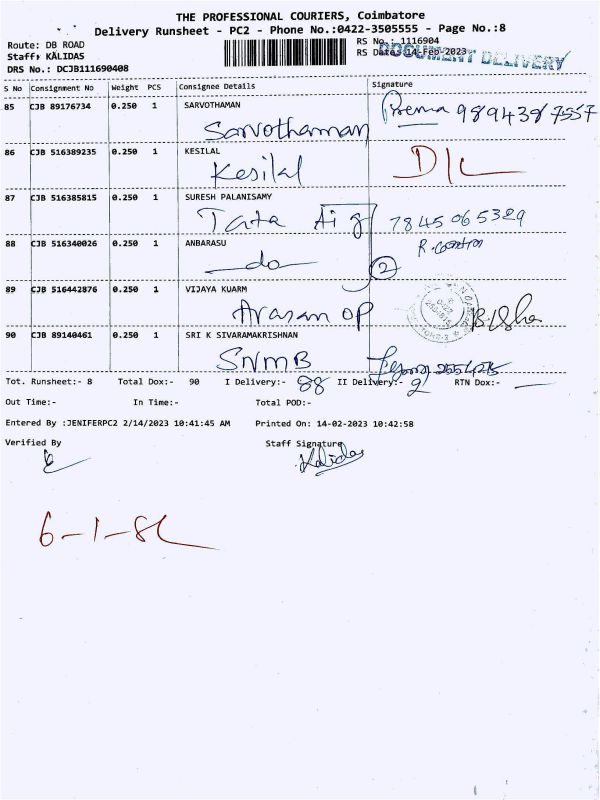 THE PROFESSIONAL COURIERS, Coimbatore
Delivery Runsheet - PC2 - Phone No.:0422-3505555 - Page No.:8
Route: DB ROAD
RS No.: 1116904
Staff: KALIDAS
RS Date: 14-Feb-2023
DOCUMENT DELIVERY
DRS No.: DCJB111690408
S No Consignment No Weight PCS Consignee Details Signature
85 CJB 89176734 0.250 1 SARVOTHAMAN
Sarvothaman Prema 9894387557
86 CJB 516389235 0.250 1 KESILAL
Kesilal D/L
87 CJB 516385815 0.250 1 SURESH PALANISAMY
Tata Aig 7845065329
88 CJB 516340026 0.250 1 ANBARASU
do 2
89 CJB 516442876 0.250 1 VIJAYA KUARM
Arasan OP
90 CJB 89140461 0.250 1 SRI K SIVARAMAKRISHNAN
SNMB
Tot. Runsheet:- 8 Total Dox:- 90 I Delivery:- 88 II Delivery:- 2 RTN Dox:-
Out Time:- In Time:- Total POD:-
Entered By :JENIFERPC2 2/14/2023 10:41:45 AM Printed On: 14-02-2023 10:42:58
Verified By Staff Signature
Kalidas